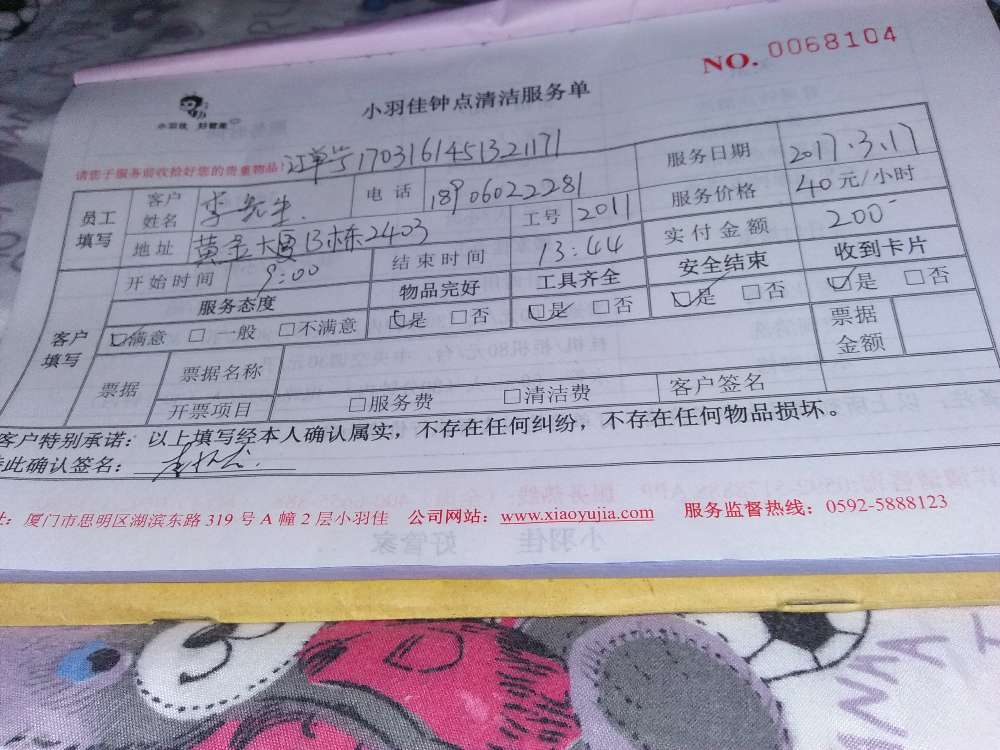 NO. 0068104
小羽佳钟点清洁服务单
小羽佳 好管家
请您于服务前收拾好您的贵重物品! 订单号170316145132117​1
服务日期 2017.3.17
员工填写 客户姓名 李先生. 电话 18906022281 服务价格 40元/小时
地址 黄金大厦B栋2403 工号 2011 实付金额 200
客户填写 开始时间 9:00 结束时间 13:44 安全结束 收到卡片
服务态度 物品完好 工具齐全 ☑是 □否 ☑是 □否
☑满意 □一般 □不满意 ☑是 □否 ☑是 □否 票据金额
票据 票据名称
开票项目 □服务费 □清洁费 客户签名
客户特别承诺：以上填写经本人确认属实，不存在任何纠纷，不存在任何物品损坏。
此确认签名：
厦门市思明区湖滨东路 319 号 A 幢 2 层小羽佳 公司网站：www.xiaoyujia.com 服务监督热线：0592-5888123